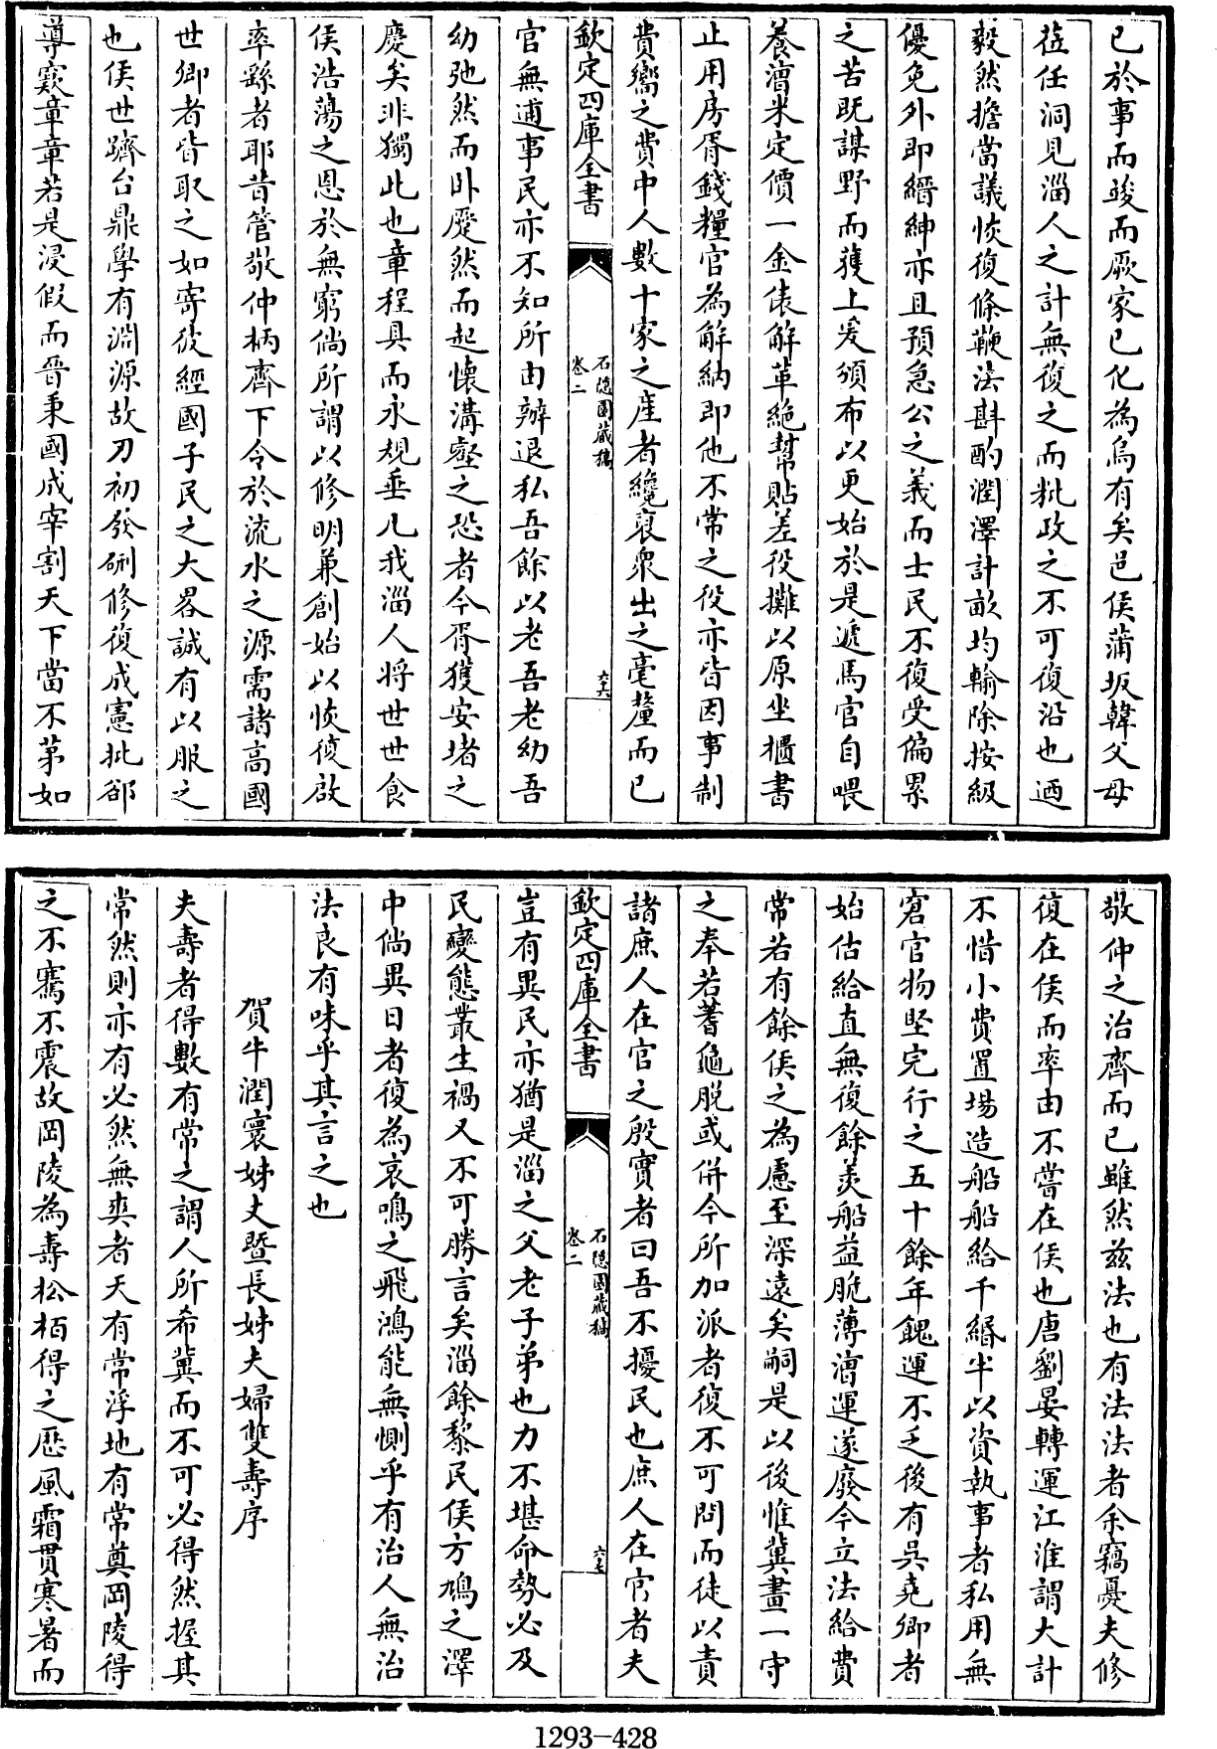 已於事而竣而厥家已化為烏有矣邑侯蒲坂韓父母
蒞任洞見淄人之計無復之而粃政之不可復沿也迺
毅然擔當議恢復條鞭法斟酌潤澤計畝均輸除按級
優免外即縉紳亦且預急公之義而士民不復受偏累
之苦既謀野而獲上爰頒布以更始於是遞馬官自喂
養漕米定價一金俵解革絶幫貼差役攤以原坐櫃書
止用房胥錢糧官為解納即他不常之役亦皆因事制
費嚮之費中人數十家之產者纔裒衆出之毫釐而已
欽定四庫全書
石隱園藏稿
卷二
六六
官無逋事民亦不知所由辦退私吾餘以老吾老幼吾
幼弛然而卧蹙然而起懷溝壑之恐者今胥獲安堵之
慶矣非獨此也章程具而永規垂凡我淄人將世世食
侯浩蕩之恩於無窮倘所謂以修明兼創始以恢復啟
率繇者耶昔管敬仲柄齊下令於流水之源需諸高國
世卿者皆取之如寄彼經國子民之大畧誠有以服之
也侯世躋台鼎學有淵源故刃初發硎修復成憲批郤
導窾章章若是浸假而晉秉國成宰割天下當不第如
敬仲之治齊而已雖然兹法也有法法者余竊憂夫修
復在侯而率由不嘗在侯也唐劉晏轉運江淮謂大計
不惜小費置塲造船船給千緡半以資執事者私用無
窘官物堅完行之五十餘年餽運不乏後有吳堯卿者
始估給直無復餘羨船益脆薄漕運遂廢今立法給費
常若有餘侯之為慮至深遠矣嗣是以後惟冀畫一守
之奉若蓍龜脱或併今所加派者復不可問而徒以責
諸庶人在官之殷實者曰吾不擾民也庶人在官者夫
欽定四庫全書
石隱園藏稿
卷二
六七
豈有異民亦猶是淄之父老子弟也力不堪命勢必及
民變態叢生禍又不可勝言矣淄餘黎民侯方鳩之澤
中倘異日者復為哀鳴之飛鴻能無惻乎有治人無治
法良有味乎其言之也
賀牛潤寰姊丈暨長姊夫婦雙壽序
夫壽者得數有常之謂人所希冀而不可必得然握其
常然則亦有必然無爽者天有常浮地有常奠岡陵得
之不騫不震故岡陵為壽松栢得之歷風霜貫寒暑而
1293-428